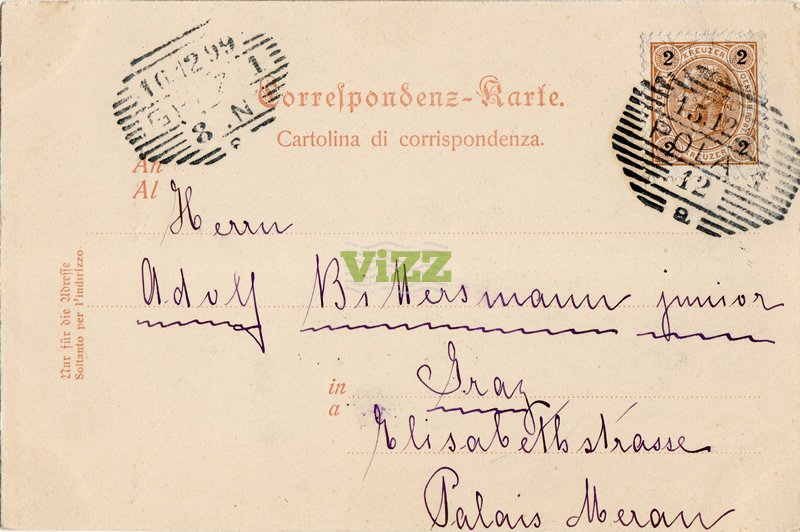 Correspondenz-Karte.
Cartolina di corrispondenza.
An
Al
Herrn
Adolf Bittersmann junior
in
a
Graz
Elisabethstrasse
Palais Meran
Nur für die Adresse
Soltanto per l'indirizzo
ViZZ
16.12.99
GRAZ 1
8 N
2 KREUZER 2
2 KREUZER 2
13.12
POLA 1
12
a